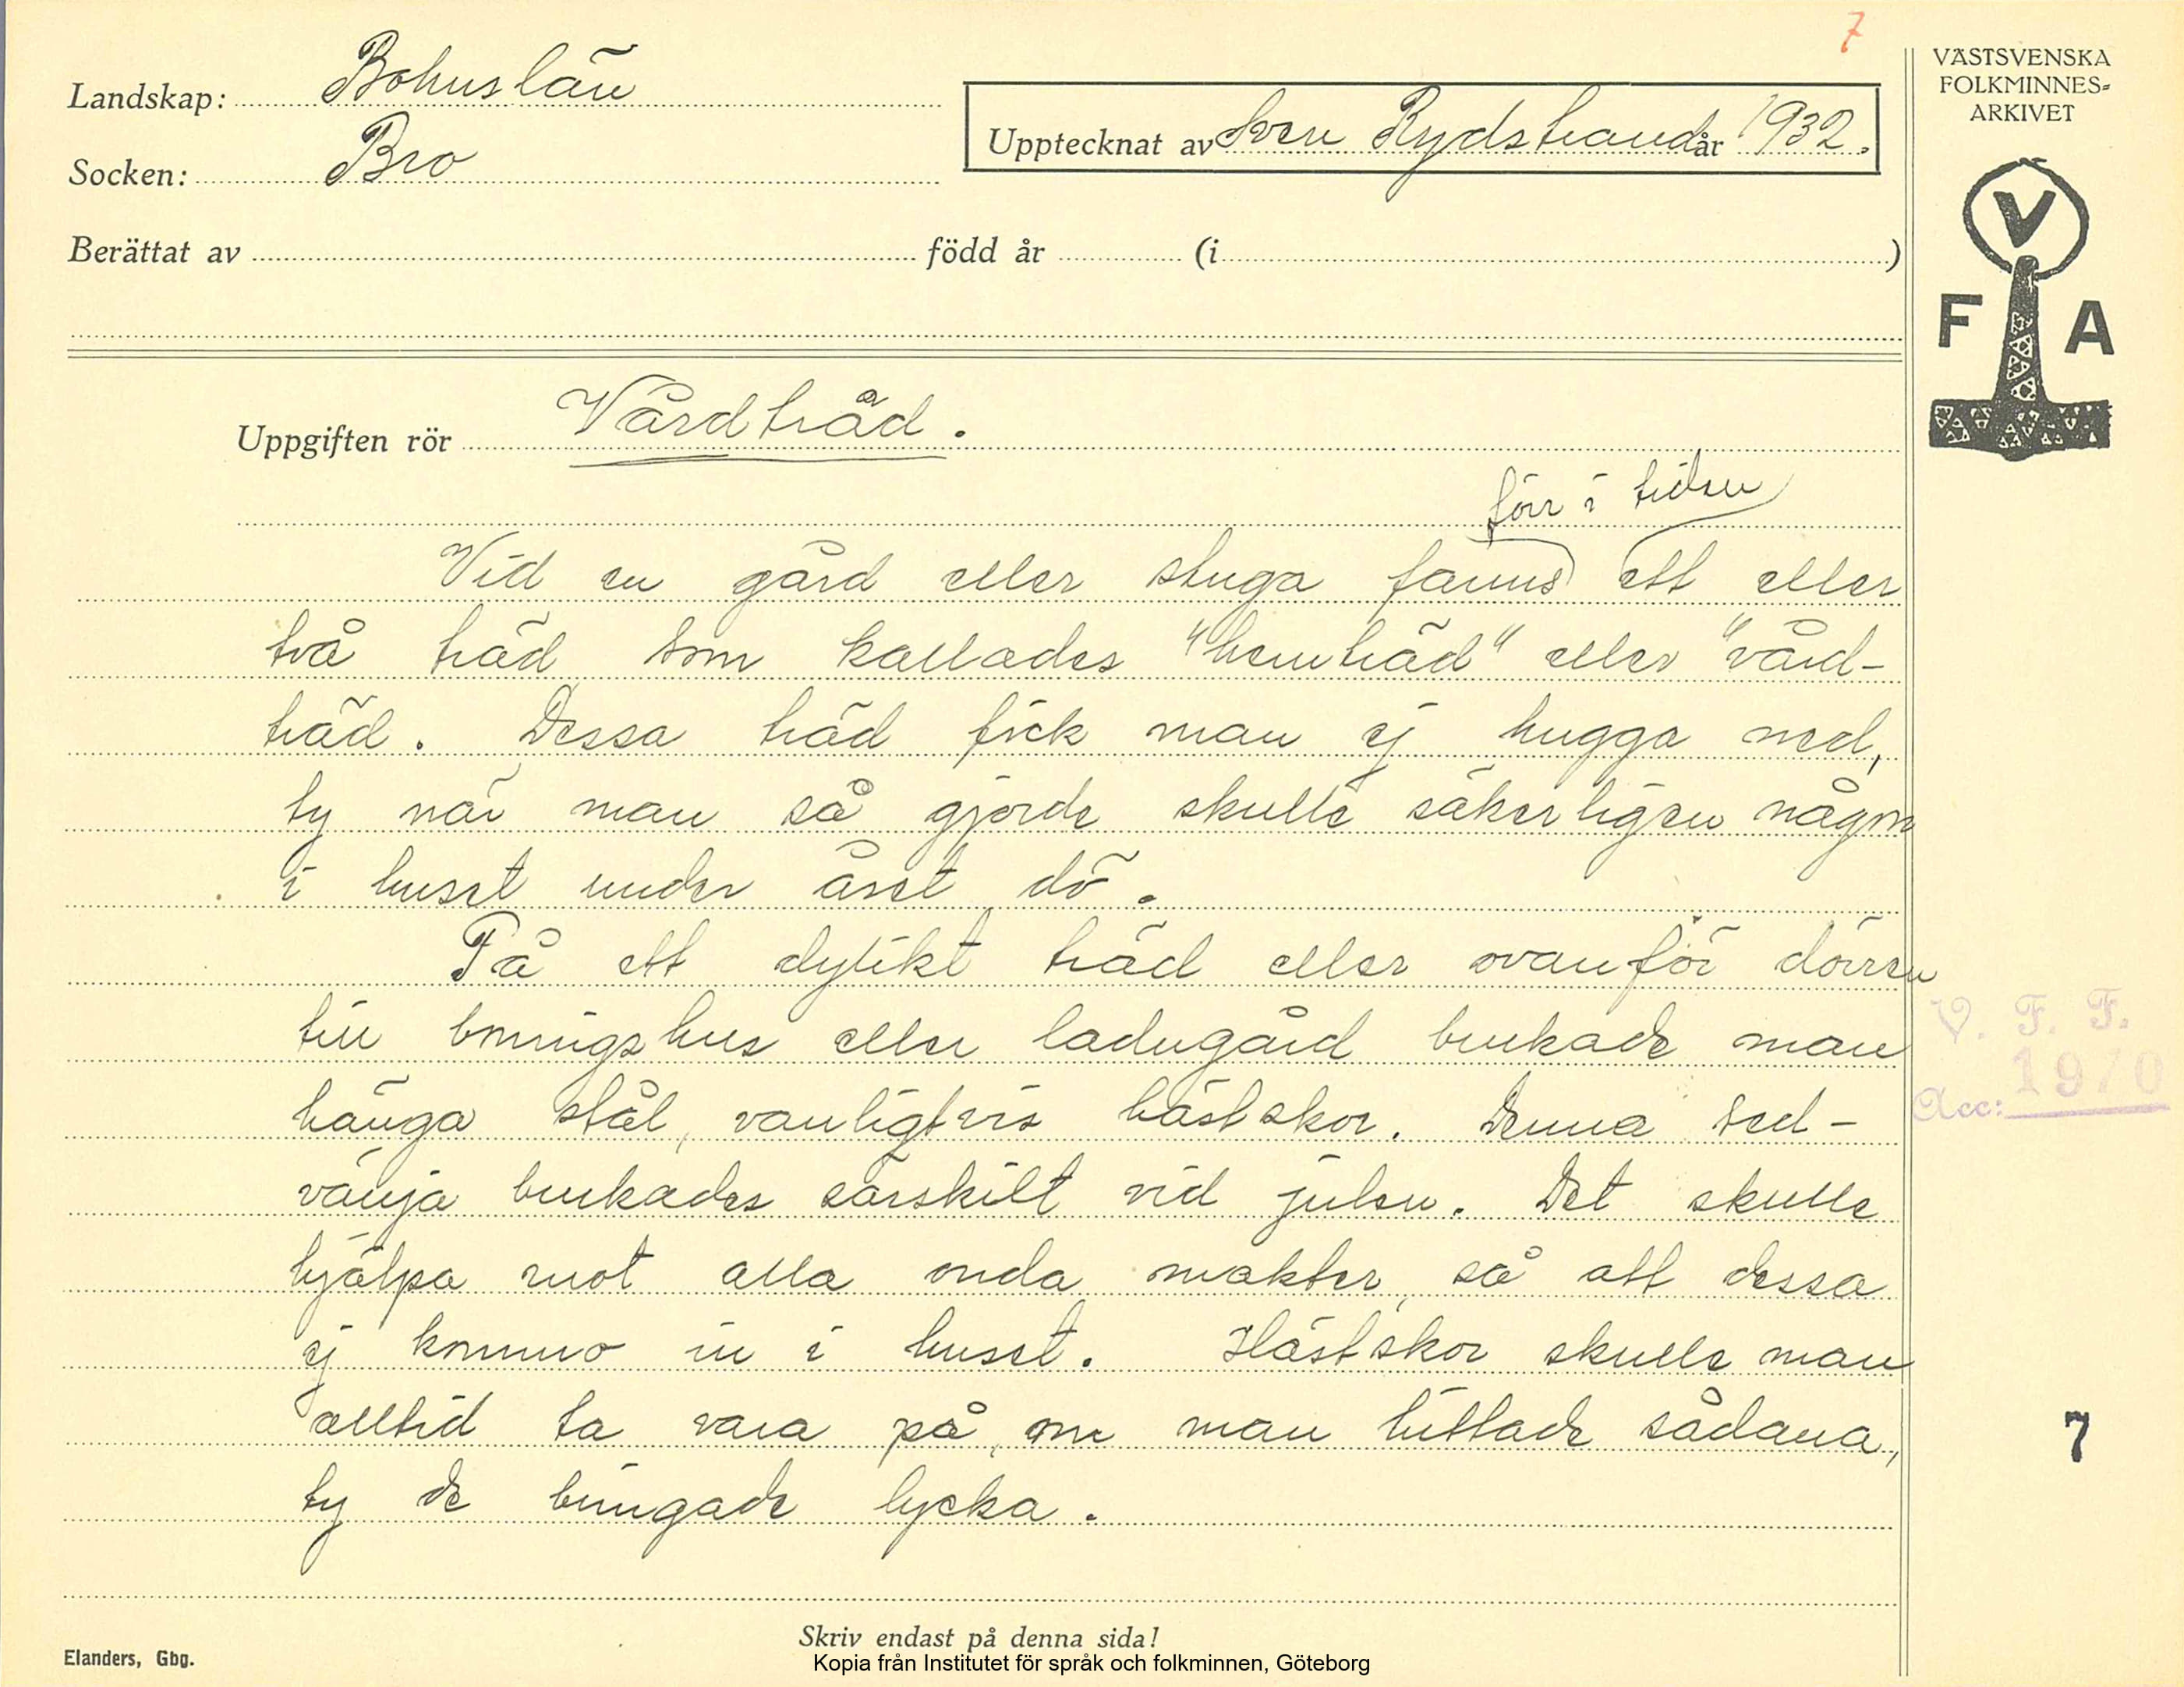 7
VÄSTSVENSKA
FOLKMINNES=
ARKIVET
Landskap: Bohuslän
Upptecknat av Sven Rydstrand år 1932.
Socken: Bro
Berättat av född år (i )
V
F A
Uppgiften rör Vårdträd.
förr i tiden
Vid en gård eller stuga fanns ett eller
två träd som kallades "hemträd" eller "vård-
träd. Dessa träd fick man ej hugga ned,
ty när man så gjorde skulle säkerligen någon
i huset under året dö.
På ett dylikt träd eller ovanför dörren
till boningshus eller ladugård brukade man
hänga stål, vanligtvis hästskor. Denna sed-
vänja brukades särskilt vid julen. Det skulle
hjälpa mot alla onda makter, så att dessa
ej kommo in i huset. Hästskor skulle man
alltid ta vara på, om man hittade sådana,
ty de bringade lycka.
V. F. F.
Acc: 1970
7
Skriv endast på denna sida!
Elanders, Gbg.
Kopia från Institutet för språk och folkminnen, Göteborg